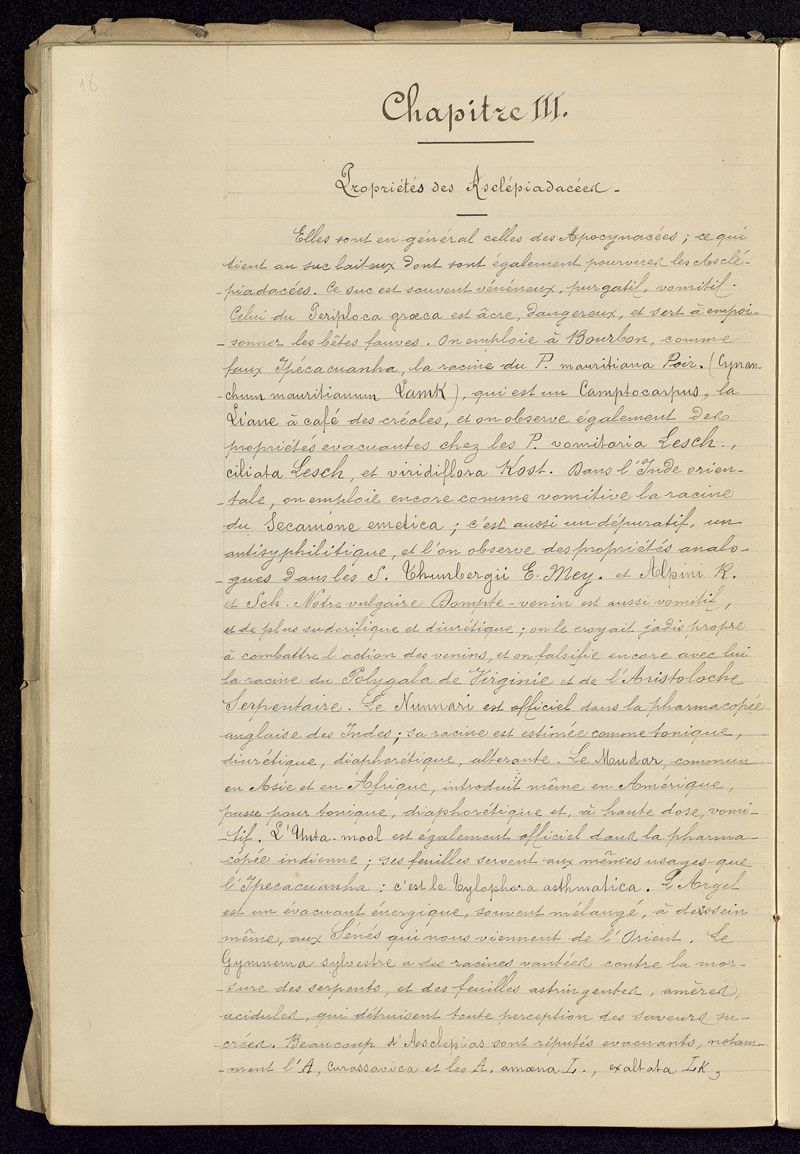 18
Chapitre III.
Propriétés des Asclépiadacées -
Elles sont en général celles des Apocynacées ; ce qui
tient au suc laiteux dont sont également pourvues les Asclé-
-piadacées. Ce suc est souvent vénéneux, purgatif, vomitif.
Celui du Periploca græca est âcre, dangereux, et sert à empoi-
-sonner les bêtes fauves. On emploie à Bourbon, comme
faux Ipécacuanha, la racine du P. mauritiana Poir. (Cynan-
-chum mauritianum Lamk), qui est un Camptocarpus, la
Liane à café des créoles, et on observe également des
propriétés evacuantes chez les P. vomitoria Lesch.,
ciliata Lesch, et viridiflora Kost. Dans l'Inde orien-
-tale, on emploie encore comme vomitive la racine
du Secamone emetica ; c'est aussi un dépuratif, un
antisyphilitique, et l'on observe des propriétés analo-
-gues dans les S. Thunbergii E. Mey. et Alpini R.
et Sch. Notre vulgaire Dompte-venin est aussi vomitif,
et de plus sudorifique et diurétique ; on le croyait jadis propre
à combattre l'action des venins, et on falsifie encore avec lui
la racine du Polygala de Virginie et de l'Aristoloche
Serpentaire. Le Nunnari est officiel dans la pharmacopée
anglaise des Indes ; sa racine est estimée comme tonique,
diurétique, diaphorétique, alterante. Le Mudar, commun
en Asie et en Afrique, introduit même en Amérique,
passe pour tonique, diaphorétique et, à haute dose, vomi-
-tif. L'Unta-mool est également officiel dans la pharma-
-copée indienne ; ses feuilles servent aux mêmes usages que
l'Ipecacuanha : c'est le Tylophora asthmatica. L'Argel
est un évacuant énergique, souvent mélangé, à dessein
même, aux Sénés qui nous viennent de l'Orient. Le
Gymnema sylvestre a des racines vantées contre la mor-
-sure des serpents, et des feuilles astringentes, amères,
acidules, qui détruisent toute perception des saveurs su-
-crées. Beaucoup d'Asclepias sont réputés evacuants, notam-
-ment l'A, curassavica et les A. amœna L., exaltata Lk,